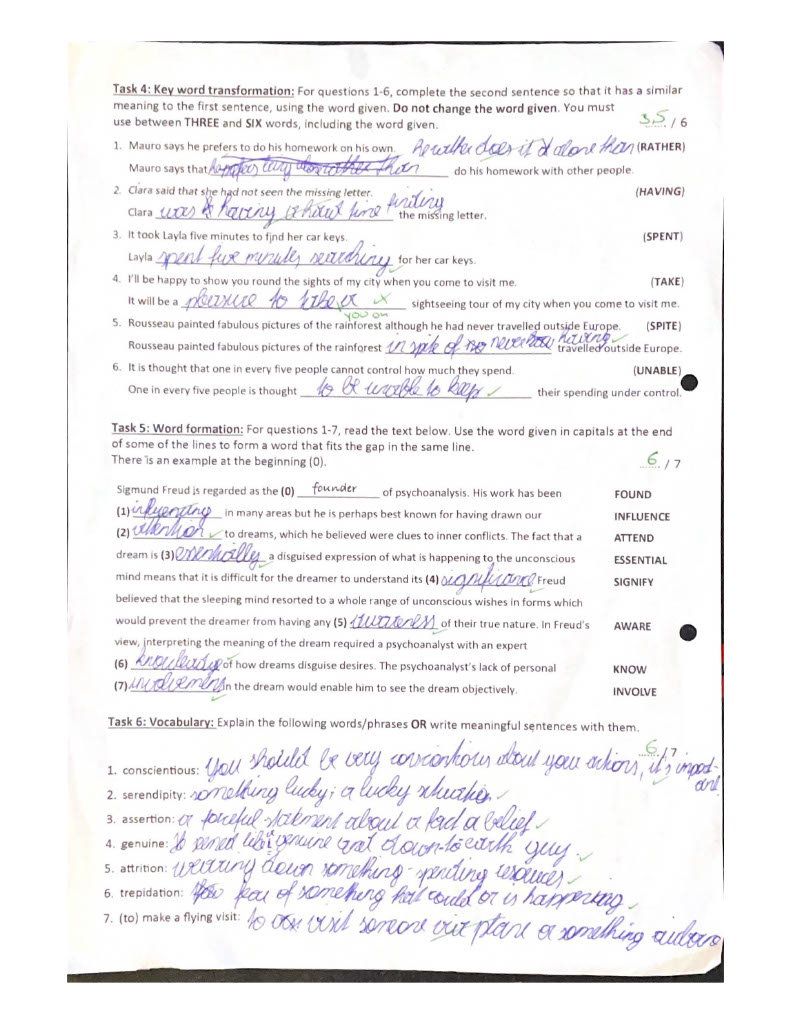 Task 4: Key word transformation: For questions 1-6, complete the second sentence so that it has a similar
meaning to the first sentence, using the word given. Do not change the word given. You must
use between THREE and SIX words, including the word given. 3,5 / 6
1. Mauro says he prefers to do his homework on his own. he rather does it alone than (RATHER)
Mauro says that do his homework with other people.
2. Clara said that she had not seen the missing letter. (HAVING)
Clara was having finding the missing letter.
3. It took Layla five minutes to find her car keys. (SPENT)
Layla spent five minutes searching for her car keys.
4. I'll be happy to show you round the sights of my city when you come to visit me. (TAKE)
It will be a pleasure to take a sightseeing tour of my city when you come to visit me.
you on
5. Rousseau painted fabulous pictures of the rainforest although he had never travelled outside Europe. (SPITE)
Rousseau painted fabulous pictures of the rainforest in spite of never having travelled outside Europe.
6. It is thought that one in every five people cannot control how much they spend. (UNABLE)
One in every five people is thought to be unable to keep their spending under control.
Task 5: Word formation: For questions 1-7, read the text below. Use the word given in capitals at the end
of some of the lines to form a word that fits the gap in the same line.
There is an example at the beginning (0). 6 / 7
Sigmund Freud is regarded as the (0) founder of psychoanalysis. His work has been FOUND
(1) influencing in many areas but he is perhaps best known for having drawn our INFLUENCE
(2) attention to dreams, which he believed were clues to inner conflicts. The fact that a ATTEND
dream is (3) essentially a disguised expression of what is happening to the unconscious ESSENTIAL
mind means that it is difficult for the dreamer to understand its (4) significance Freud SIGNIFY
believed that the sleeping mind resorted to a whole range of unconscious wishes in forms which
would prevent the dreamer from having any (5) awareness of their true nature. In Freud's AWARE
view, interpreting the meaning of the dream required a psychoanalyst with an expert
(6) knowledge of how dreams disguise desires. The psychoanalyst's lack of personal KNOW
(7) involvement in the dream would enable him to see the dream objectively. INVOLVE
Task 6: Vocabulary: Explain the following words/phrases OR write meaningful sentences with them.
6 / 7
1. conscientious: You should be very conscientious about your actions, it's import-
ant
2. serendipity: something lucky; a lucky situation
3. assertion: a forceful statement about a fact a belief
4. genuine: genuine and down-to-earth guy.
5. attrition: wearing down something - spending resources
6. trepidation: fear of something that could or is happening
7. (to) make a flying visit: to visit someone plane or something